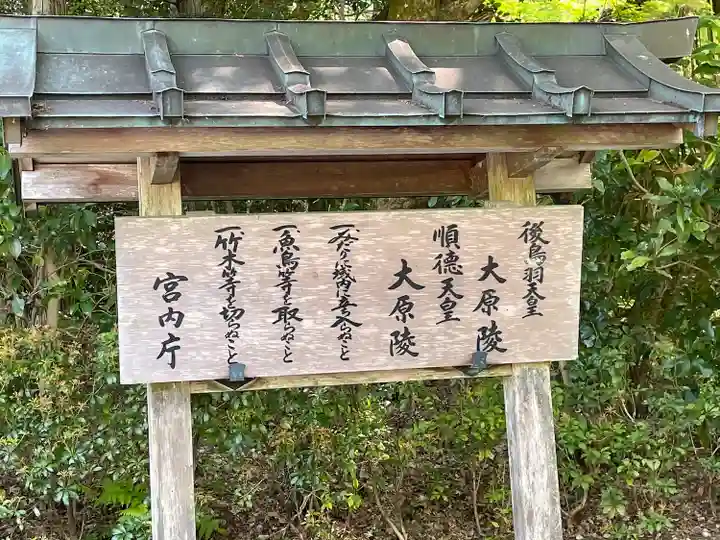 後鳥羽天皇
大原陵
順徳天皇
大原陵
一、みだりに域内に立ち入らぬこと
一、魚鳥等を取らぬこと
一、竹木等を切らぬこと
宮内庁